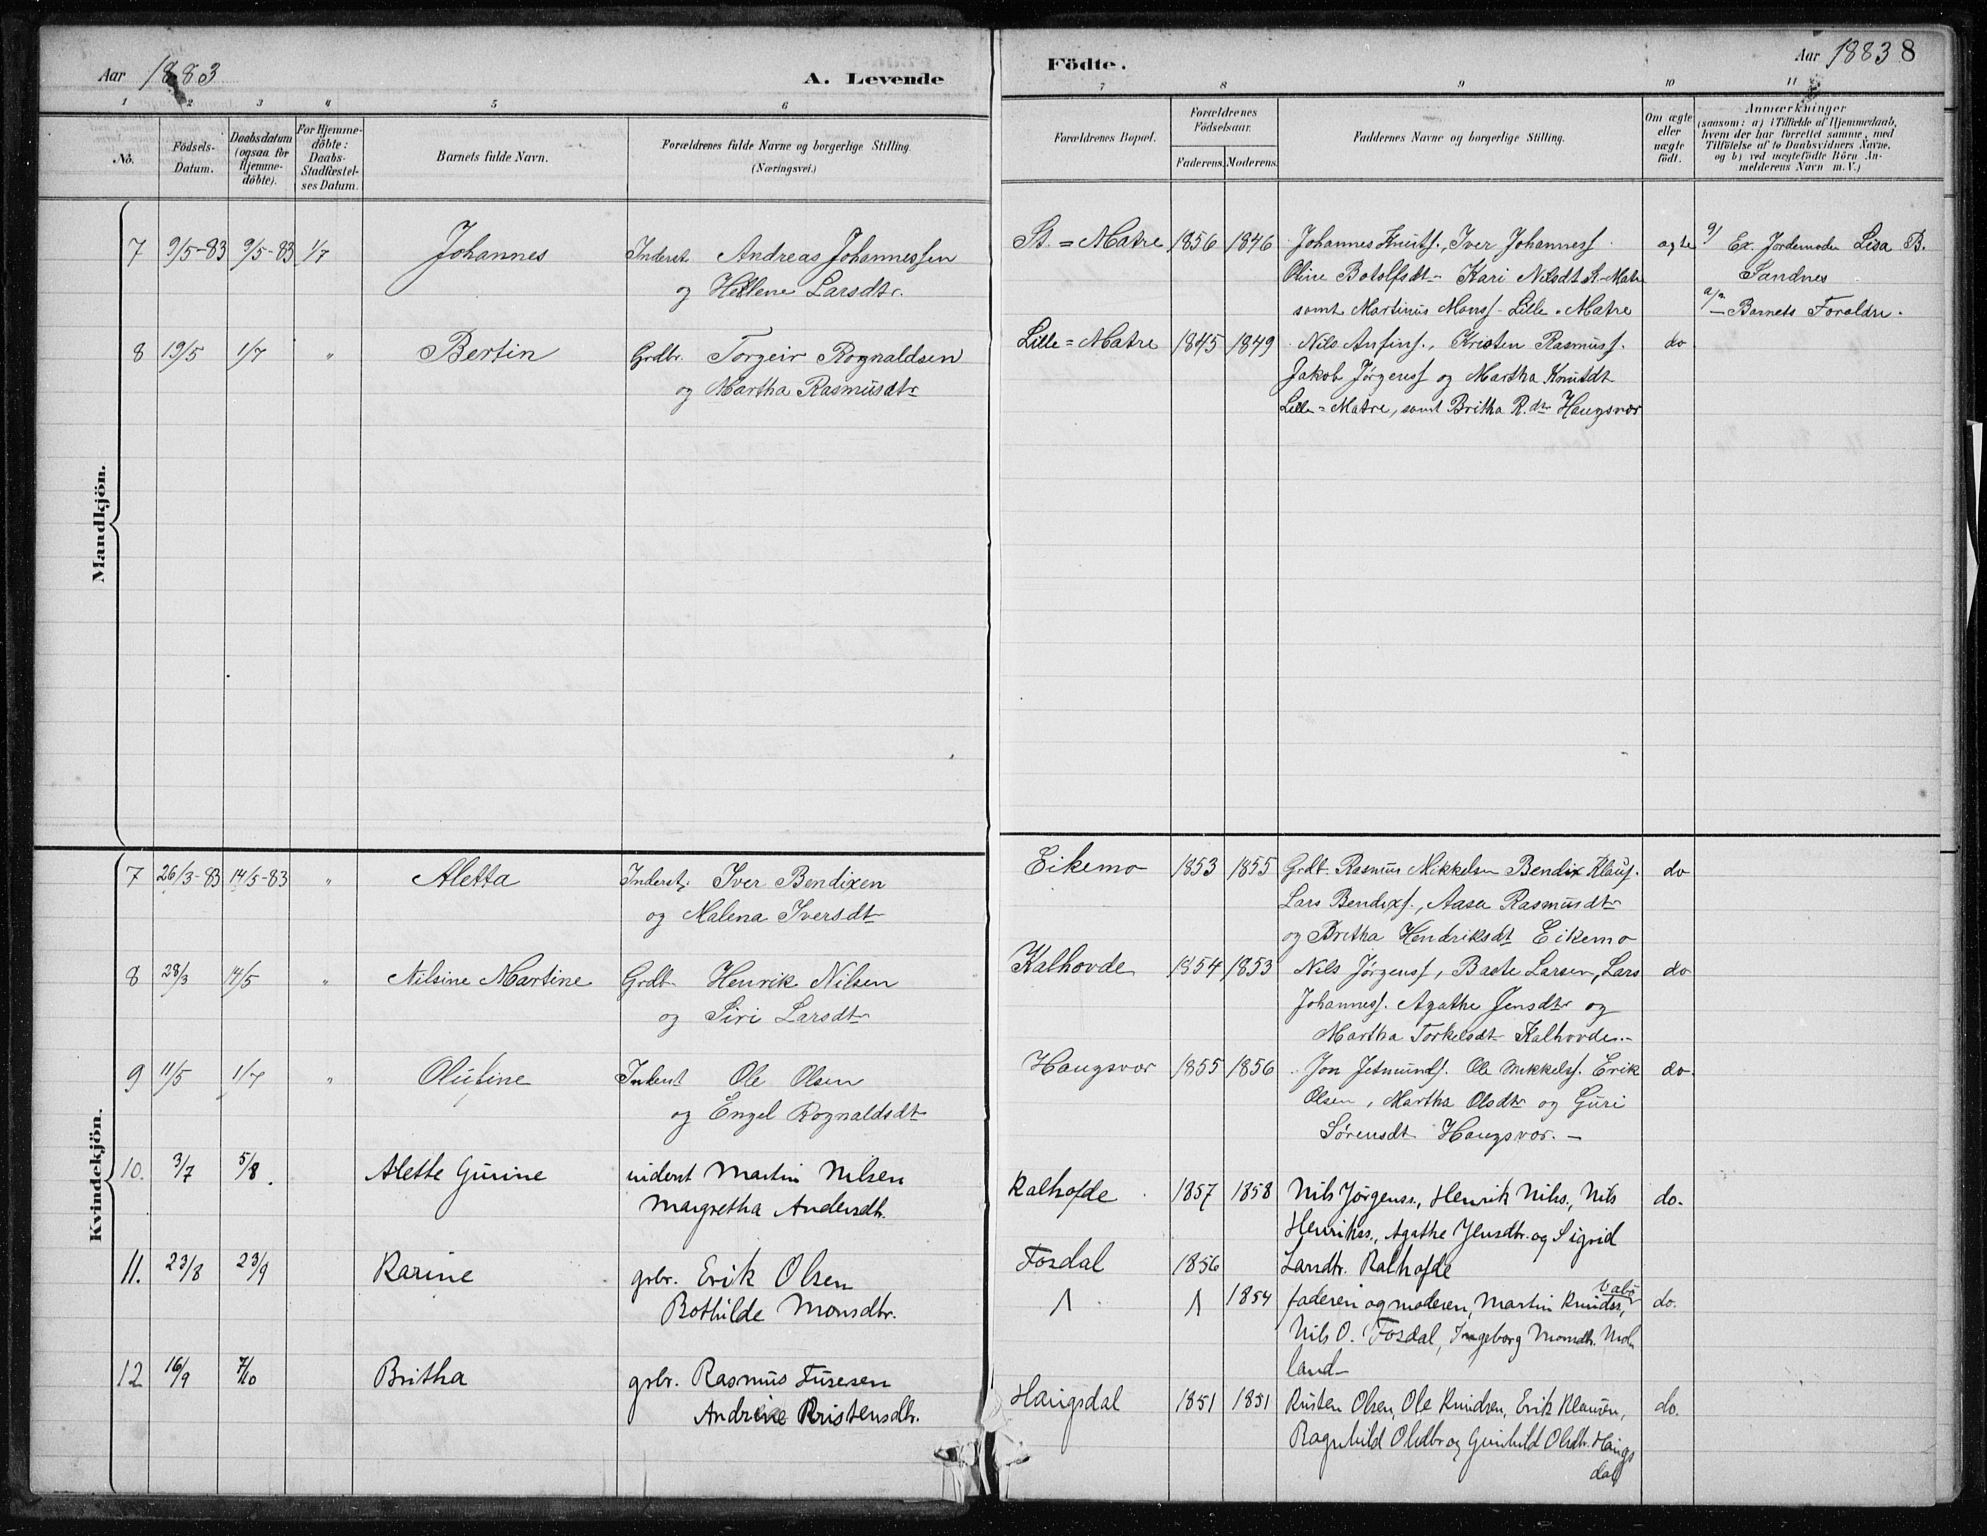 Aar 1883
A. Levende
Födte.
Aar 1883 8
1 2 3 4 5 6 7 8 9 10 11
No.
Födsels-
Datum.
Daabsdatum
(ogsaa for
Hjemme-
döbte).
For Hjemme-
döbte:
Daabs-
Stadfæstel-
ses Datum.
Barnets fulde Navn.
Forældrenes fulde Navne og borgerlige Stilling.
(Næringsvei.)
Forældrenes Bopæl.
Forældrenes
Födselsaar.
Faderens. Moderens.
Faddernes Navne og borgerlige Stilling.
Om ægte
eller
uægte
födt.
Anmærkninger
(saasom: a) i Tilfælde af Hjemmedaab,
hvem der har forrettet samme, med
Tilföielse af to Daabsvidners Navne.
og b) ved uægtefödte Börn An-
melderens Navn m. V.)
Mandkjön.
7 9/5-83 9/5-83 1/7 Johannes Inderst. Andreas Johannessen St. = Matre 1856 1846 Johannes Knuts. Iver Johanness. ægte
og Hellene Larsdtr. Oline Botolfsdt Kari Nilsdt St. Matre
samt Martinus Monss. Lille-Matre
Ex. Jordemoder Lisa B.
Sandnes
Barnets Foraldre.
8 19/5 1/7 " Bertin Grdbr. Torgeir Rognaldsen Lille=Matre 1845 1849 Nils Anfins., Kristen Rasmuss. do
og Martha Rasmusdtr Jakob Jørgenss og Martha Knutsdt
Lille=Matre, samt Britha R.dtr Haugsvær
Kvindekjön.
7 26/3-83 14/5-83 " Aletta Inderst. Iver Bendixen Eikemo 1853 1855 Grdt. Rasmus Mikkelsen Bendix Klaus. do
og Malena Iversdt Lars Bendixs., Aasa Rasmusdtr
og Britha Hendriksdt Eikemo
8 28/3 14/5 " Nilsine Martine Grdt. Henrik Nilsen Kalhovde 1854 1853 Nils Jørgenss, Baste Larsen, Lars do
og Siri Larsdtr Johanness. Agathe Jensdtr og
Martha Torkelsdt Kalhovde.
9 11/5 1/7 " Olufine Inderst Ole Olsen Haugsvær 1855 1856 Jon Jetmunds. Ole Mikkelss. Erik do
og Engel Rognaldsdt Olsen, Martha Olsdtr og Guri
Sørensdt Haugsvær.
10. 3/7 5/8. Alette Gurine inderst Martin Nilsen Kalhofde 1857 1858 Nils Jörgenss., Henrik Nilss., Nils do.
Margretha Andersdtr. Henrikss., Agathe Jensdtr. og Sigrid
Larsdtr. Kalhofde
11. 23/8 23/9 Karine grbr. Erik Olsen Fosdal 1856
Bothilde Monsdtr. 1854 faderen og moderen, Martin Knudss, do.
Nils O. Fosdal, Ingeborg Monsdtr. Mol
land
12 16/9 7/10 Britha grbr. Rasmus Turesen Haugsdal 1851 1851 Kristen Olsen, Ole Knudsen, Erik Klausen, do.
Andrine Kristensdtr. Ragnhild Olsdtr og Gunhild Olsdtr. Haugs
dal